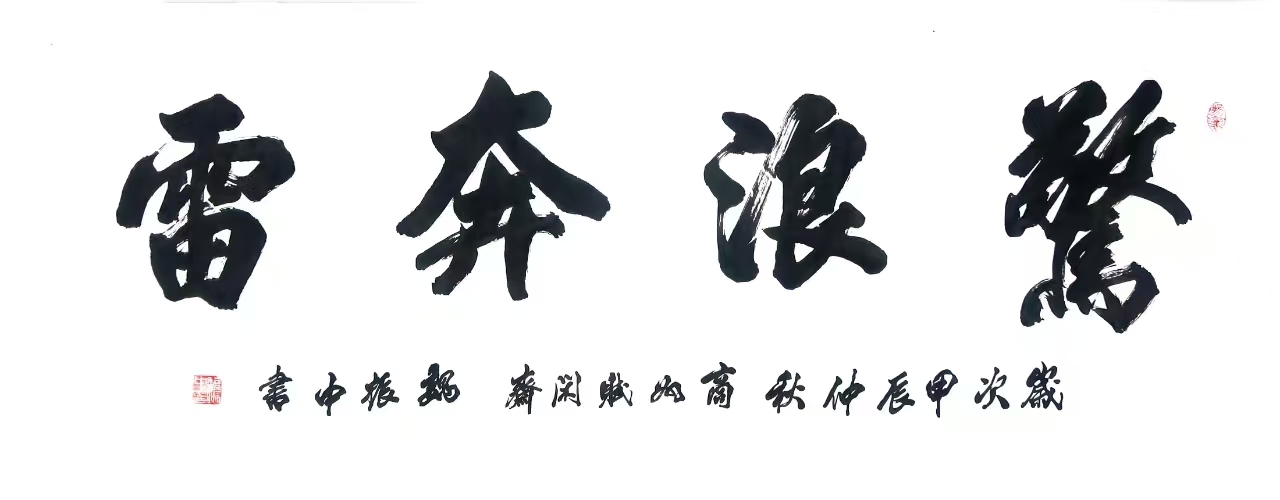 驚浪奔雷
歲次甲辰仲秋商丘賦閑齋魏振中書